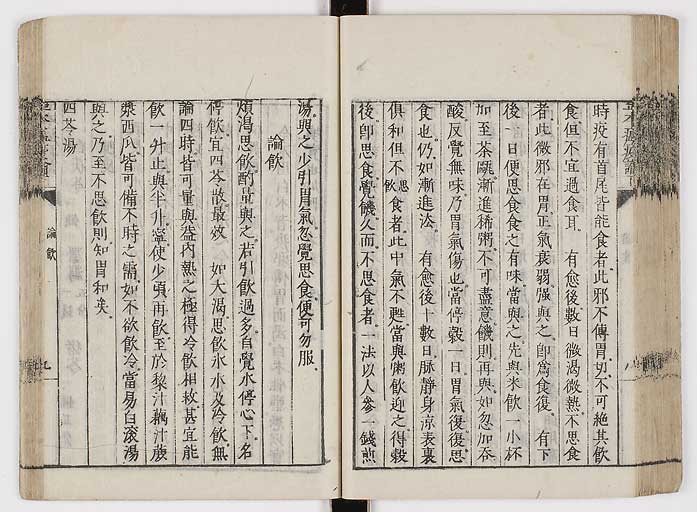 時疫有首尾皆能食者此邪不傳胃切不可絶其飲
食但不宜過食耳 有愈後數日微渴微熱不思食
者此微邪在胃正氣衰弱强與之卽爲食復 有下
後一日便思食食之有味當與之先與米飲一小杯
加至茶甌漸進稀粥不可盡意饑則再與如忽加吞
酸反覺無味乃胃氣傷也當停穀一日胃氣復復思
食也仍如漸進法 有愈後十數日脉靜身凉表裏
俱和但不思食者此中氣不甦當與粥飲迎之得穀
後卽思食覺饑久而不思食者一法以人參一錢煎
湯與之少引胃氣忽覺思食便可勿服
論飲
煩渴思飲酌量與之若引飲過多自覺水停心下名
停飲宜四苓散最效 如大渴思飲氷水及冷飲無
論四時皆可量與盖内熱之極得冷飲相救甚宜能
飲一升止與半升寧使少頃再飲至於梨汁藕汁蔗
漿西瓜皆可備不時之需如不欲飲冷當易白滾湯
與之乃至不思飲則知胃和矣
四苓湯
論飲
九